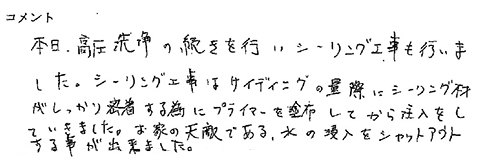 コメント
本日、高圧洗浄の続きを行いシーリング工事も行いま
した。シーリング工事はサイディングの畳際にシーリング材
がしっかり密着する為にプライマーを塗布してから注入をし
ていきました。お家の天敵である、水の侵入をシャットアウト
する事が出来ました。